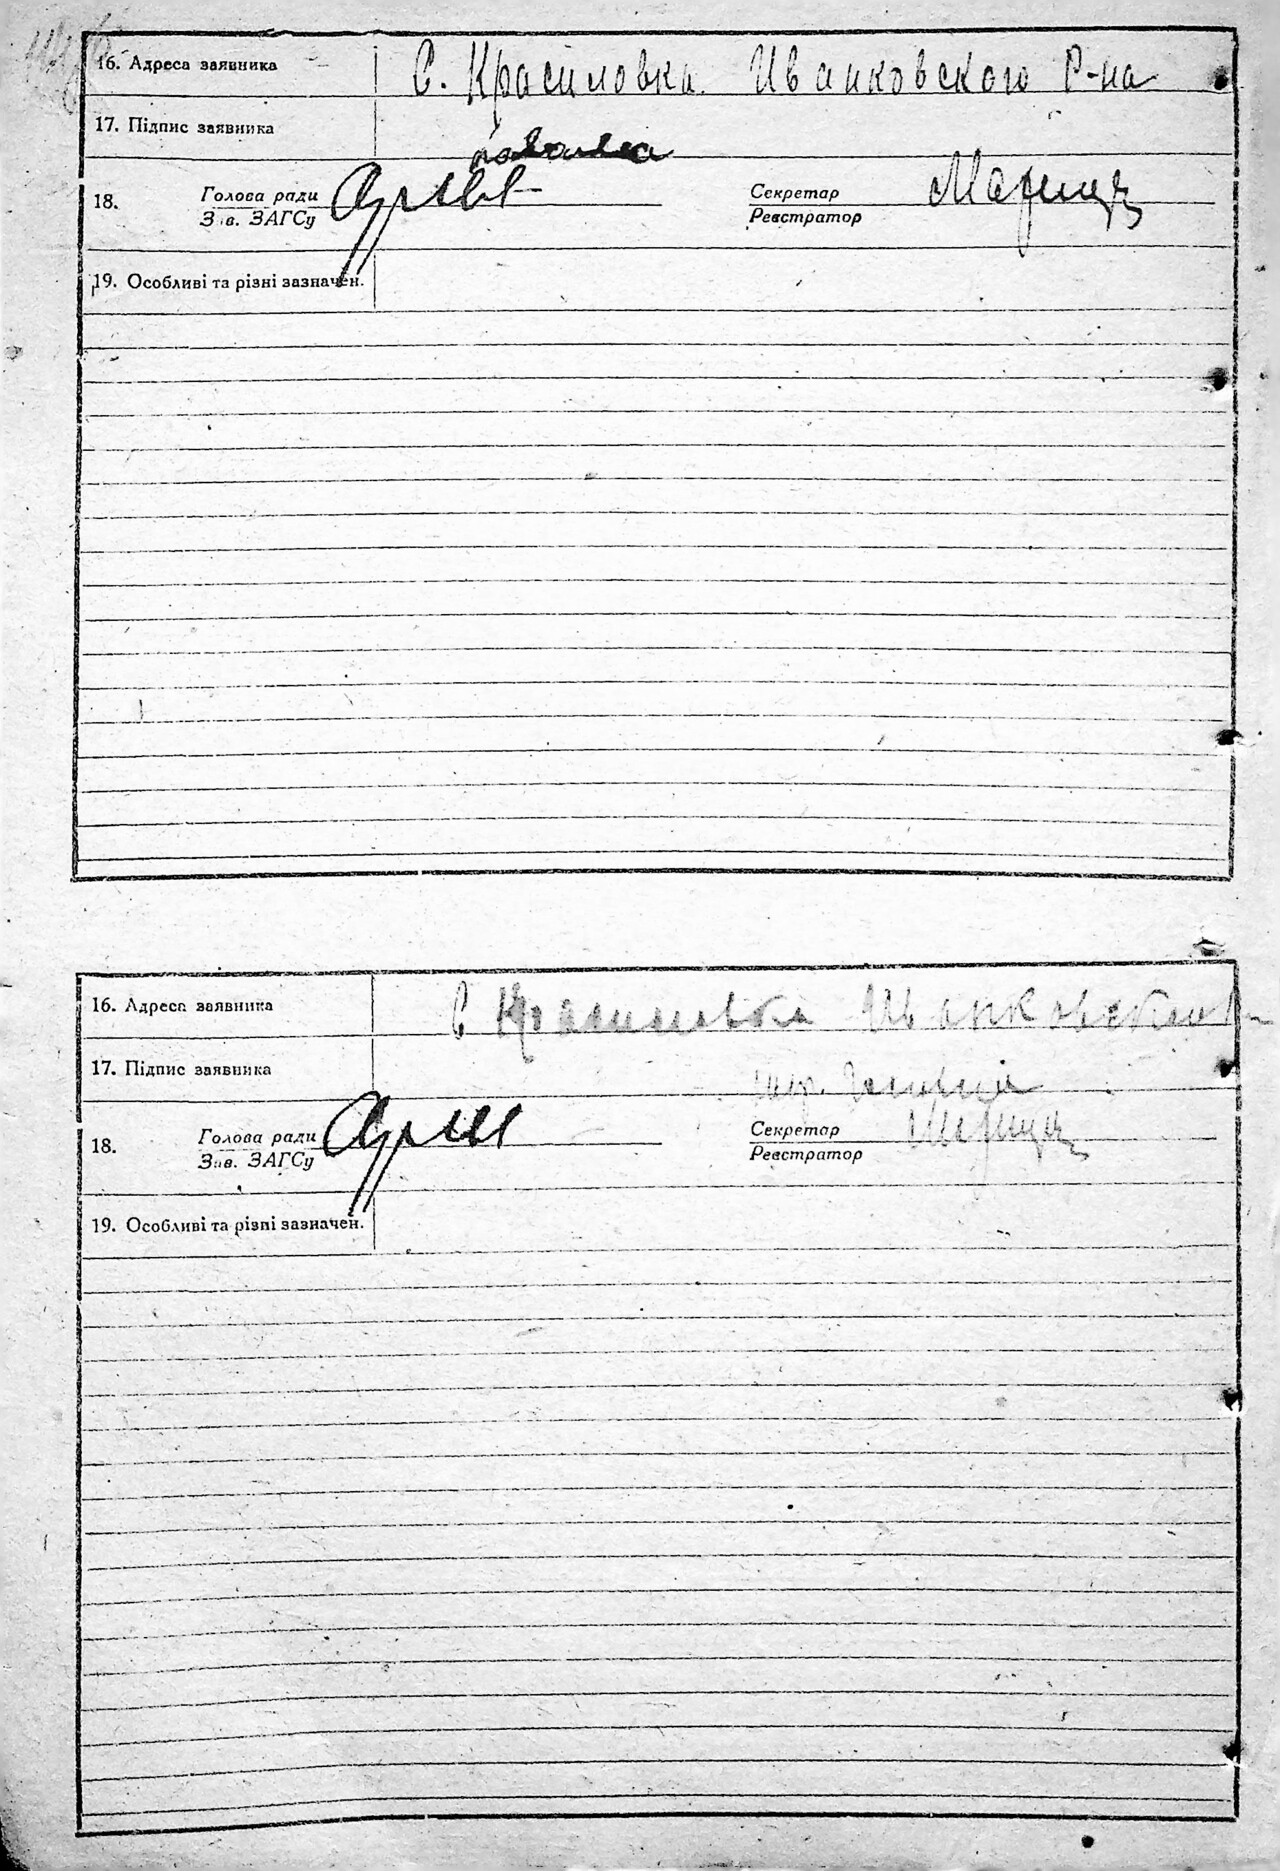 16. Адреса заявника С. Красиловка. Иванковского Р-на
17. Підпис заявника
18. Голова ради Секретар
Зав. ЗАГСу Реєстратор
19. Особливі та різні зазначен.
16. Адреса заявника С Красиловка Иванковского
17. Підпис заявника
18. Голова ради Секретар
Зав. ЗАГСу Реєстратор
19. Особливі та різні зазначен.